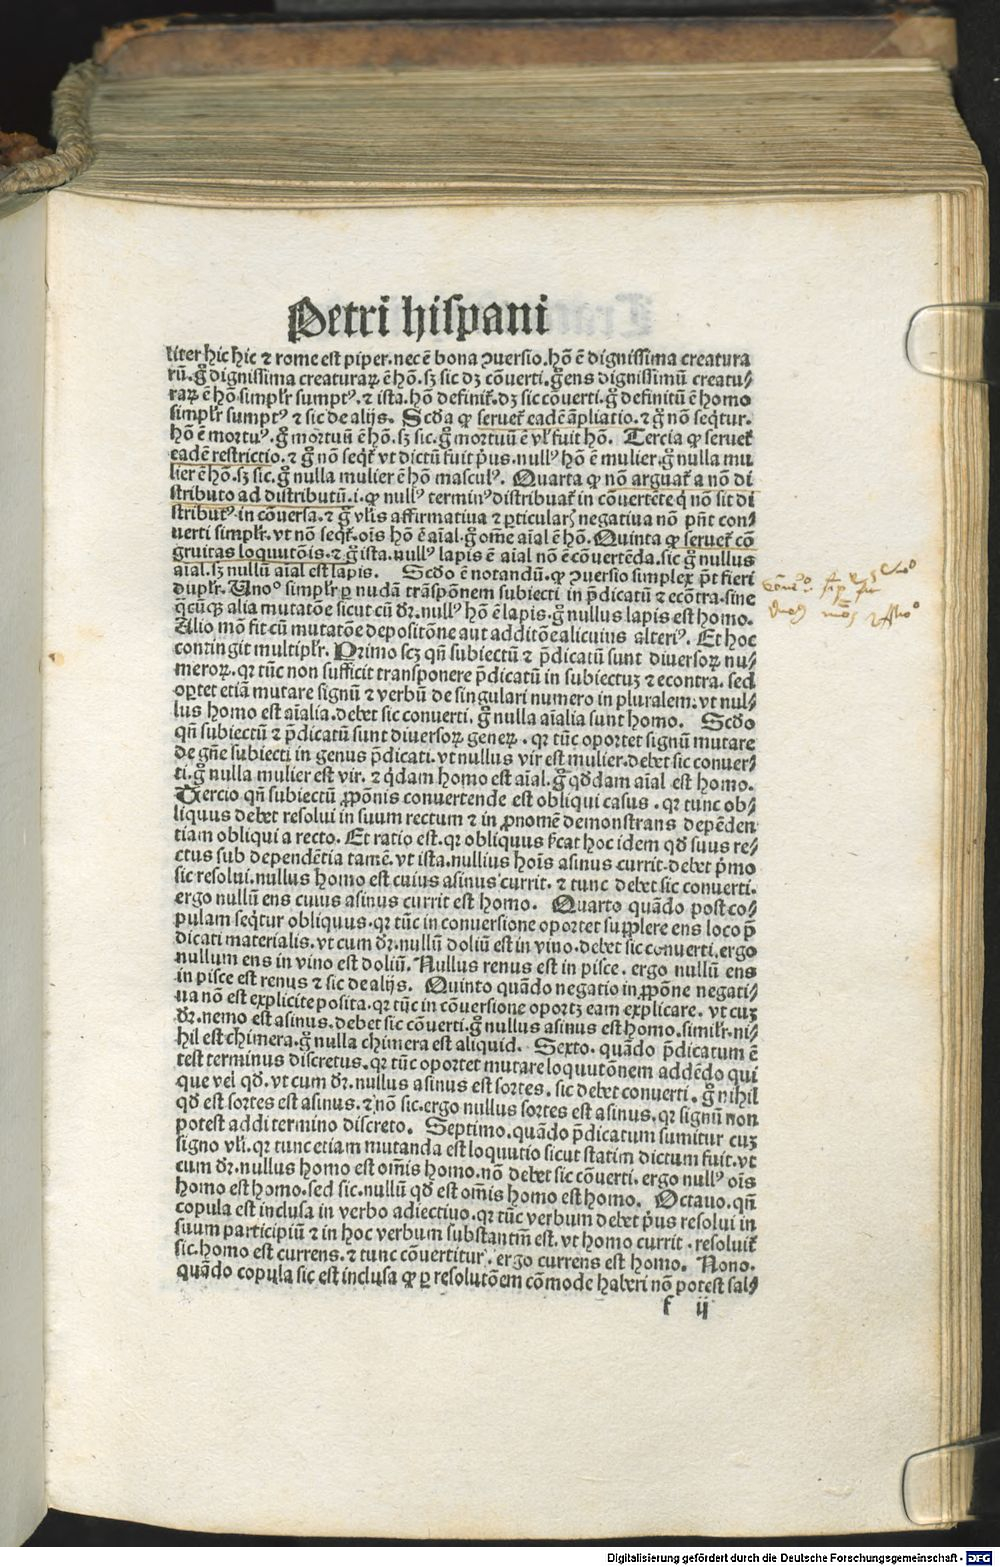 Petri hispani
liter hic hic ⁊ rome est piper. nec ē bona ↄuersio. hō ē dignissima creatura
rū. gͦ dignissima creaturaꝝ ē hō. sꝫ sic dꝫ cōuerti. gͦ ens dignissimū creatu⸗
raꝝ ē hō simplr̄ sumptꝰ. ⁊ ista. hō definit̄. dꝫ sic cōuerti. gͦ definitū ē homo
simplr̄ sumptꝰ ⁊ sic de alijs. Scd̄a ꝙ seruet̄ eadē āpliatio. ⁊ gͦ nō seq̄tur.
hō ē mortuꝰ. gͦ mortuū ē hō. sꝫ sic. gͦ mortuū ē vl̄ fuit hō. Tercia ꝙ seruet̄
eadē restrictio. ⁊ gͦ nō seq̄t̄ vt dictū fuit p̄us. nullꝰ hō ē mulier. gͦ nulla mu
lier ē hō. sꝫ sic. gͦ nulla mulier ē hō masculꝰ. Quarta ꝙ nō arguat̄ a nō di
stributo ad distributū. i. ꝙ nullꝰ terminꝰ distribuat̄ in cōuertēte q̇ nō sit di
stributꝰ in cōuersa. ⁊ gͦ vl̄is affirmatiua ⁊ ꝑticularꝭ negatiua nō pn̄t con⸗
uerti simplr̄. vt nō seq̄t̄. oīs hō ē aīal. gͦ om̄e aīal ē hō. Quinta ꝙ seruet̄ cō
gruitas loquutōis. ⁊ gͦ ista. nullꝰ lapis ē aīal nō ē cōuertēda. sic gͦ nullus
aīal. sꝫ nullū aīal est lapis. Scd̄o ē notandū. ꝙ ↄuersio simplex pōt fieri
duplr̄. Unoͦ simplr̄ ꝑ nudā trāspōnem subiecti in p̄dicatū ⁊ ecōtra. sine
q̄cūqꝫ alia mutatōe sicut cū dr̄. nullꝰ hō ē lapis. gͦ nullus lapis est homo.
Alio mō fit cū mutatōe depositōne aut additōe alicuius alteriꝰ. Et hoc
contingit multiplr̄. Primo scꝫ qn̄ subiectū ⁊ p̄dicatū sunt diuersoꝝ nu⸗
meroꝝ. qꝛ tūc non sufficit transponere p̄dicatū in subiectuꝫ ⁊ econtra. sed
oꝑtet etiā mutare signū ⁊ verbū de singulari numero in pluralem. vt nul⸗
lus homo est aīalia. debet sic conuerti. gͦ nulla aīalia sunt homo. Scd̄o
qn̄ subiectū ⁊ p̄dicatū sunt diuersoꝝ geneꝝ. qꝛ tūc oportet signū mutare
de gn̄e subiecti in genus p̄dicati. vt nullus vir est mulier. debet sic conuer⸗
ti. gͦ nulla mulier est vir. ⁊ q̇dam homo est aīal. gͦ qd̄dam aīal est homo.
Tercio qn̄ subiectū ꝓpōnis conuertende est obliqui casus. qꝛ tunc ob⸗
liquus debet resolui in suum rectum ⁊ in ꝓnomē demonstrans depēden
tiam obliqui a recto. Et ratio est. qꝛ obliquus s̄cat hoc idem qd̄ suus re⸗
ctus sub dependētia tamē. vt ista. nullius hoīs asinus currit. debet p̄mo
sic resolui. nullus homo est cuius asinus currit. ⁊ tunc debet sic conuerti.
ergo nullū ens cuius asinus currit est homo. Quarto quādo post co⸗
pulam seq̄tur obliquus. qꝛ tūc in conuersione oportet supplere ens loco p̄
dicati materialis. vt cum dr̄. nullū doliū est in vino. debet sic conuerti. ergo
nullum ens in vino est doliū. Nullus renus est in pisce. ergo nullū ens
in pisce est renus ⁊ sic de alijs. Quinto quādo negatio in ꝓpōne negati⸗
ua nō est explicite posita. qꝛ tūc in cōuersione oportꝫ eam explicare. vt cuꝫ
dr̄. nemo est asinus. debet sic cōuerti. gͦ nullus asinus est homo. similr̄. ni⸗
hil est chimera. gͦ nulla chimera est aliquid. Sexto. quādo p̄dicatum ē
test terminus discretus. qꝛ tūc oportet mutare loquutōnem addēdo qui
que vel qd̄. vt cum dr̄. nullus asinus est sortes. sic debet conuerti. gͦ nihil
qd̄ est sortes est asinus. ⁊ nō sic. ergo nullus sortes est asinus. qꝛ signū non
potest addi termino discreto. Septimo. quādo p̄dicatum sumitur cuꝫ
signo vl̄i. qꝛ tunc etiam mutanda est loquutio sicut statim dictum fuit. vt
cum dr̄. nullus homo est om̄is homo. nō debet sic cōuerti. ergo nullꝰ oīs
homo est homo. sed sic. nullū qd̄ est om̄is homo est homo. Octauo. qn̄
copula est inclusa in verbo adiectiuo. qꝛ tūc verbum debet p̄us resolui in
suum participiū ⁊ in hoc verbum substantm̄ est. vt homo currit. resoluit̄
sic. homo est currens. ⁊ tunc cōuertitur. ergo currens est homo. Nono.
quādo copula sic est inclusa ꝙ ꝑ resolutōem cōmode haberi nō potest sal⸗
f ij
Digitalisierung gefördert durch die Deutsche Forschungsgemeinschaft - DFG